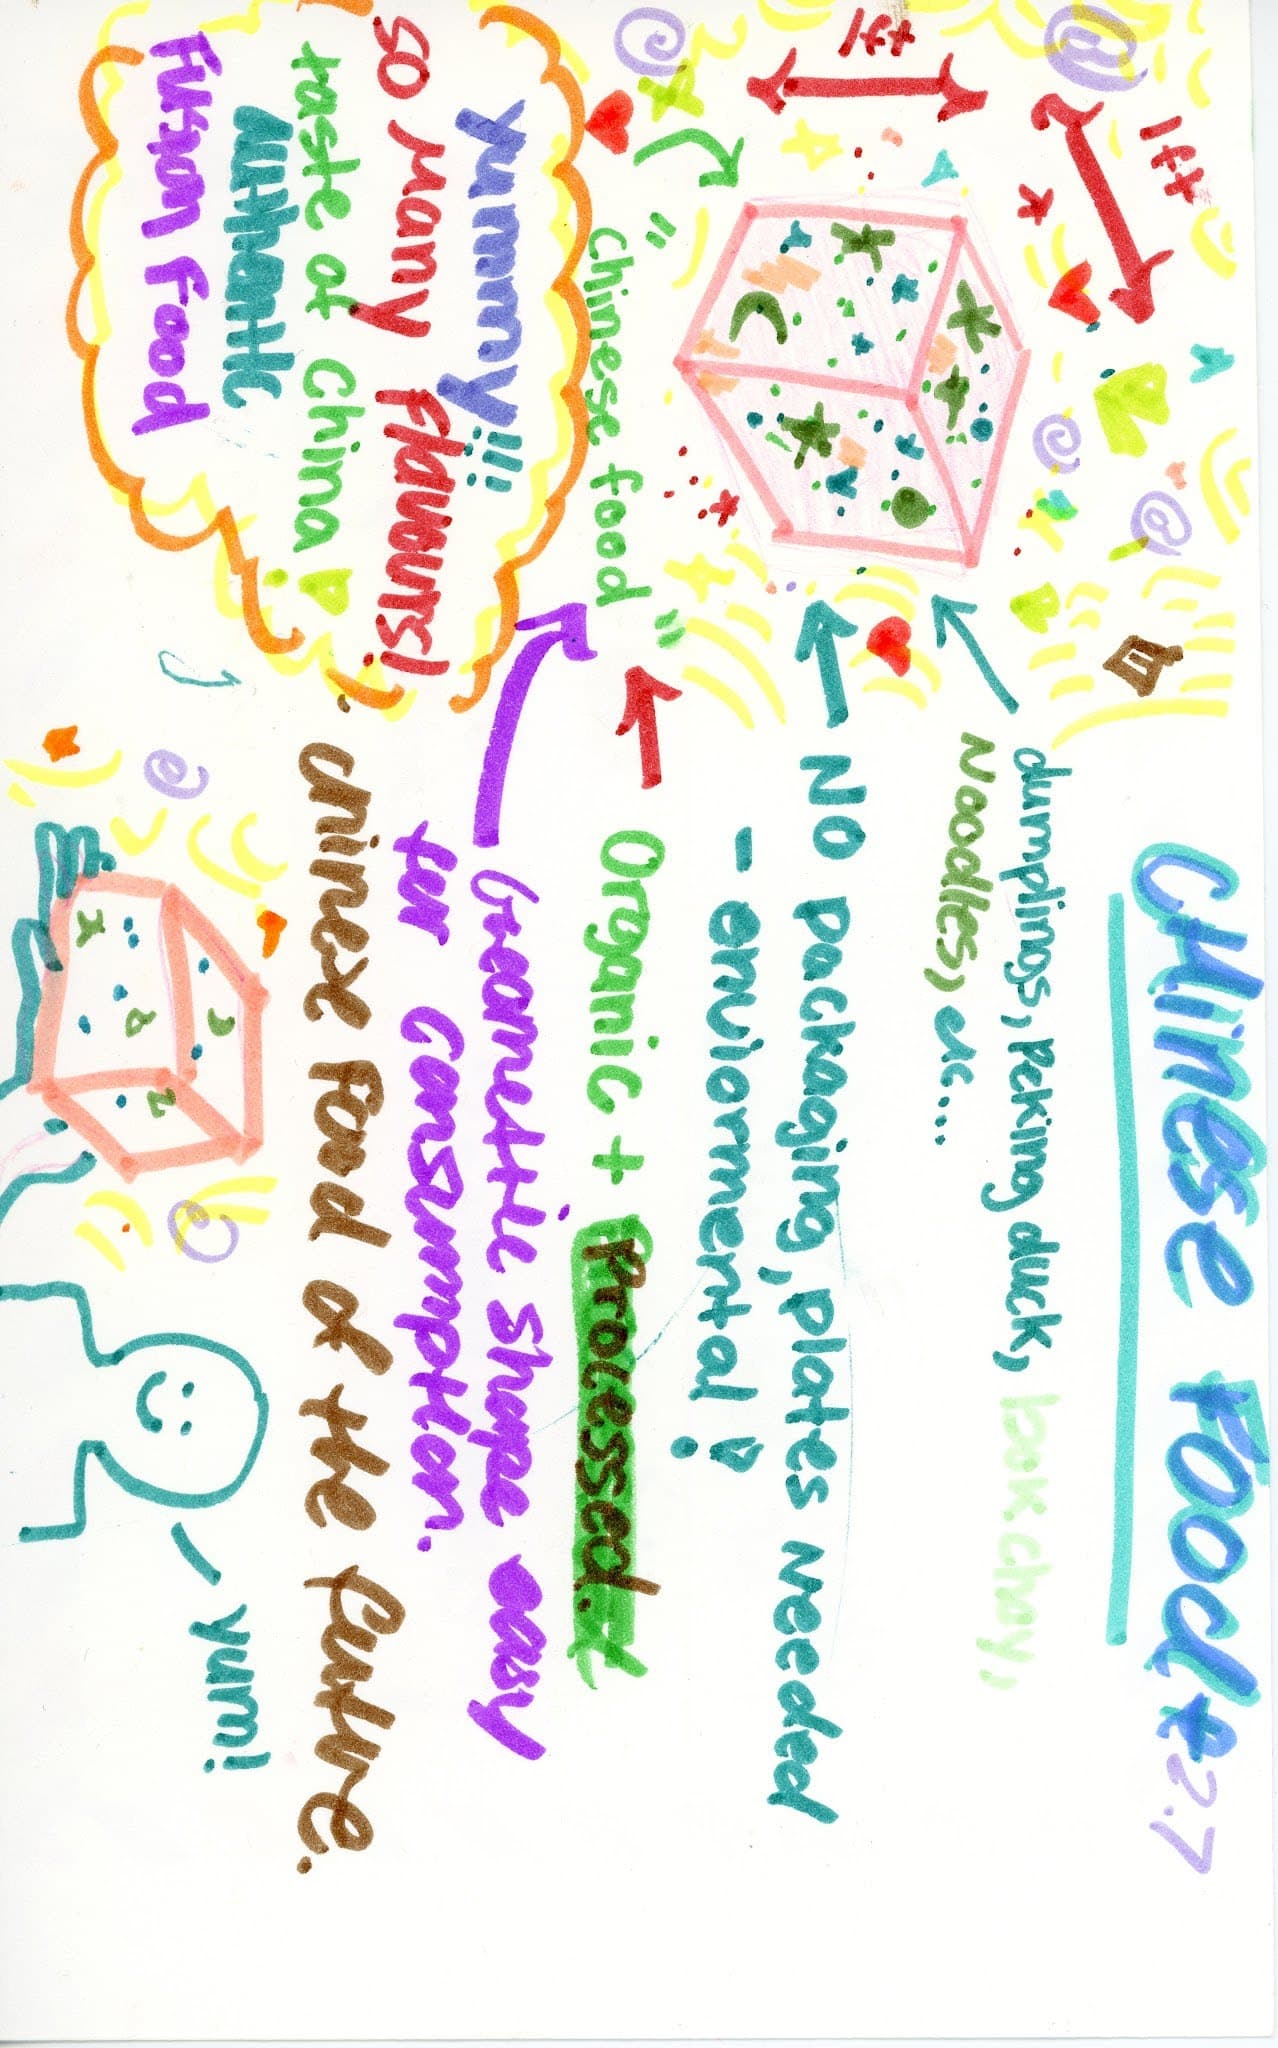 CHinese Food 2.7
1ft
1ft
dumplings, Peking duck, bok choy,
Noodles, etc....
NO packaging, plates needed
- enviormental!
"Chinese food"
Organic + Processed.
yummy!!!
so many Flavours!
taste of China!
authentic
Fusion Food
Geometric shape easy
for consumption.
chinese Food of the future.
yum!